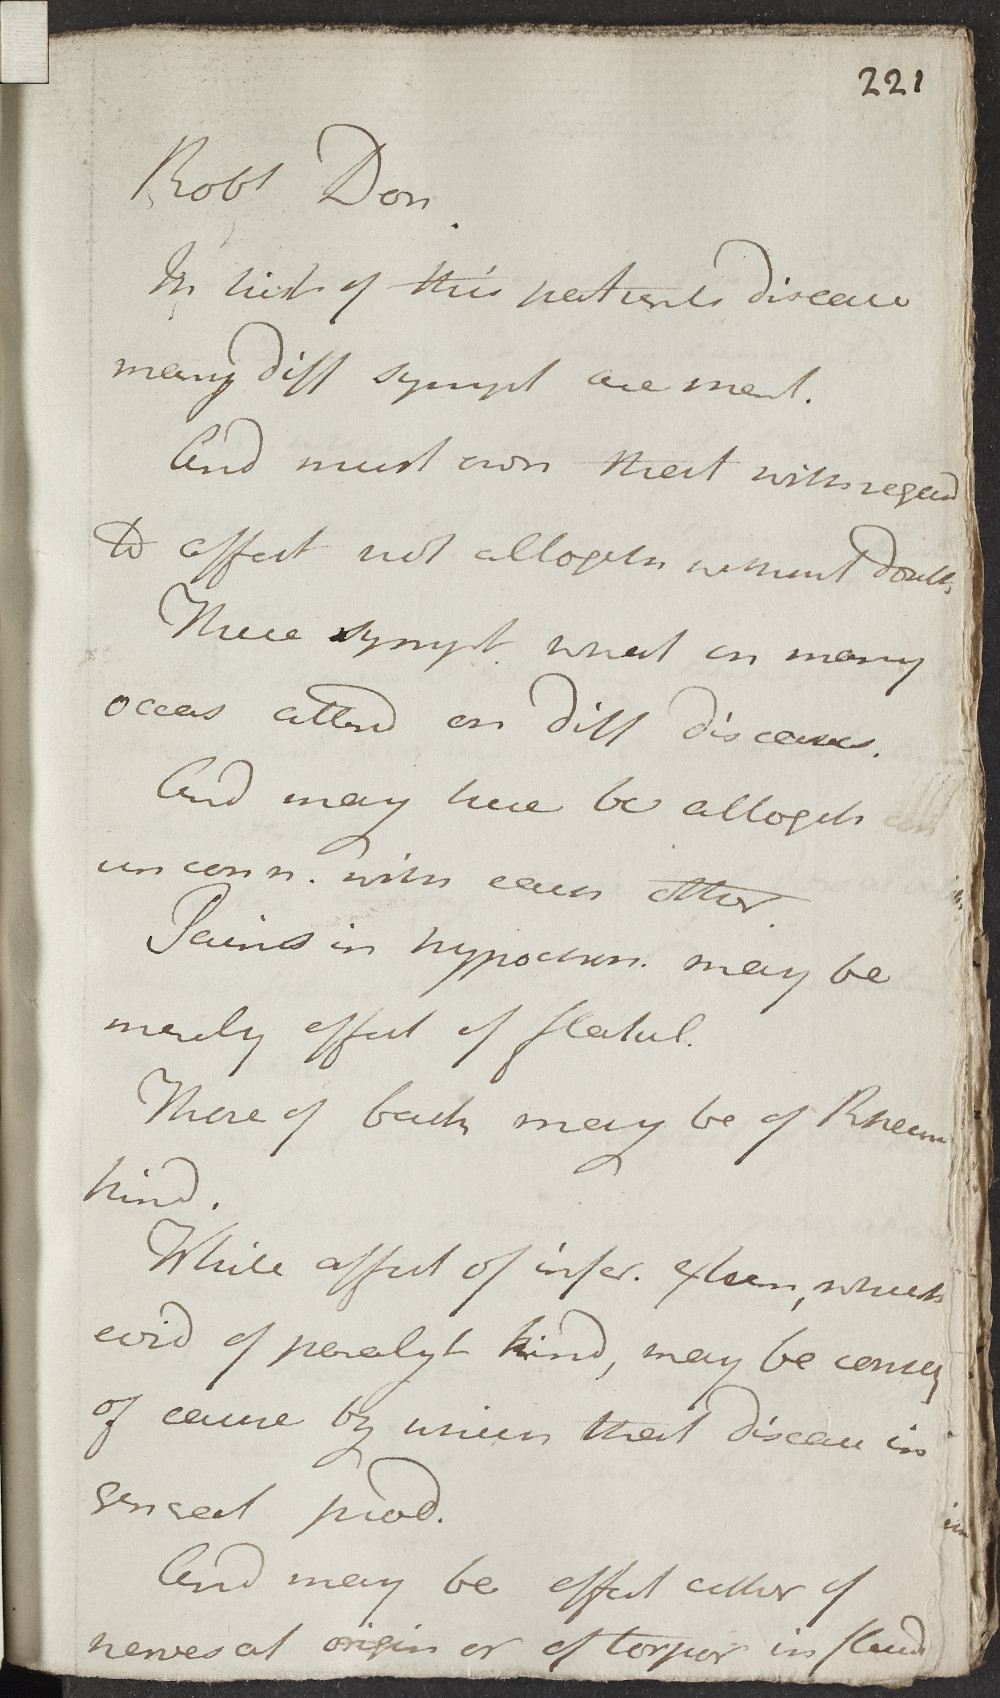 221
Robt Don.
In hist of this patients disease
many diff sympt are ment.
And must own that with regard
to affect not altogeth without doubts
These sympt what on many
occas attend on diff diseases.
And may here be altogeth
unconn. with each other.
Pains in hypochon. may be
merely effect of flatul.
Those of back may be of Rheum
kind.
While affect of infer. extrem, which
evid of paralyt kind, may be conseq
of cause by which that disease in
general prod.
And may be effect either of
nerves at origin or of torpor in